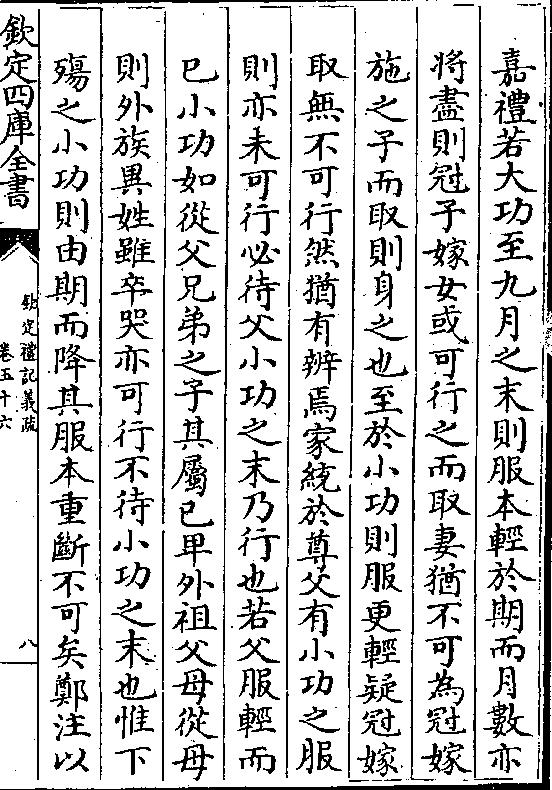 嘉禮若大功至九月之末則服本輕於期而月數亦
將盡則冠子嫁女或可行之而取妻猶不可為冠嫁
施之子而取則身之也至於小功則服更輕疑冠嫁
取無不可行然猶有辨焉家統於尊父有小功之服
則亦未可行必待父小功之末乃行也若父服輕而
已小功如從父兄弟之子其屬已卑外祖父母從母
則外族異姓雖卒哭亦可行不待小功之末也惟下
殤之小功則由期而降其服本重斷不可矣鄭注以
欽定四庫全書
欽定禮記義疏
卷五十六
八